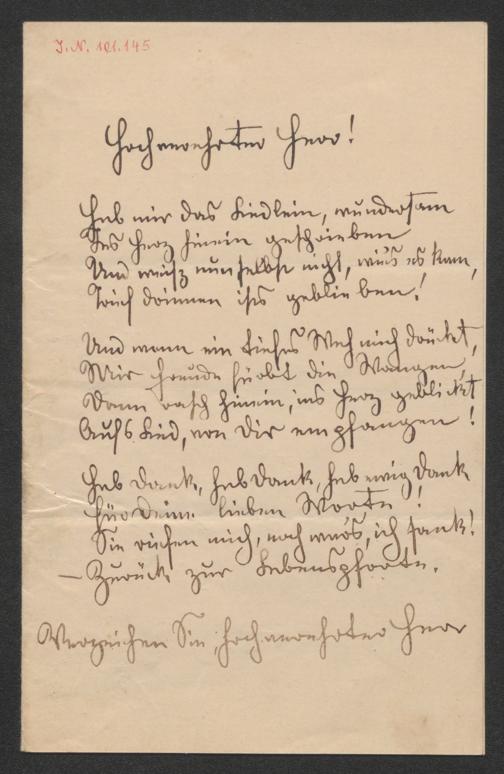 J. N. 101.145
Hochverehrter Herr!
Hab mir das Liedlein, wundersam
Ins Herz hinein geschrieben
Und weiß nun selbst nicht, wie's es kam,
Doch drinnen ist's geblieben!
Und wenn ein tiefes Weh mich drückt,
Mir Freude färbt die Wangen,
Dann rasch hinein, ins Herz geblickt
Aufs Lied, von Dir empfangen!
Hab Dank, hab Dank, hab ewig Dank
Für Deine lieben Worte!
Sie riefen mich, noch eh's, ich sank!
– Zurück zur Lebenspforte.
Verzeihen Sie, hochverehrter Herr